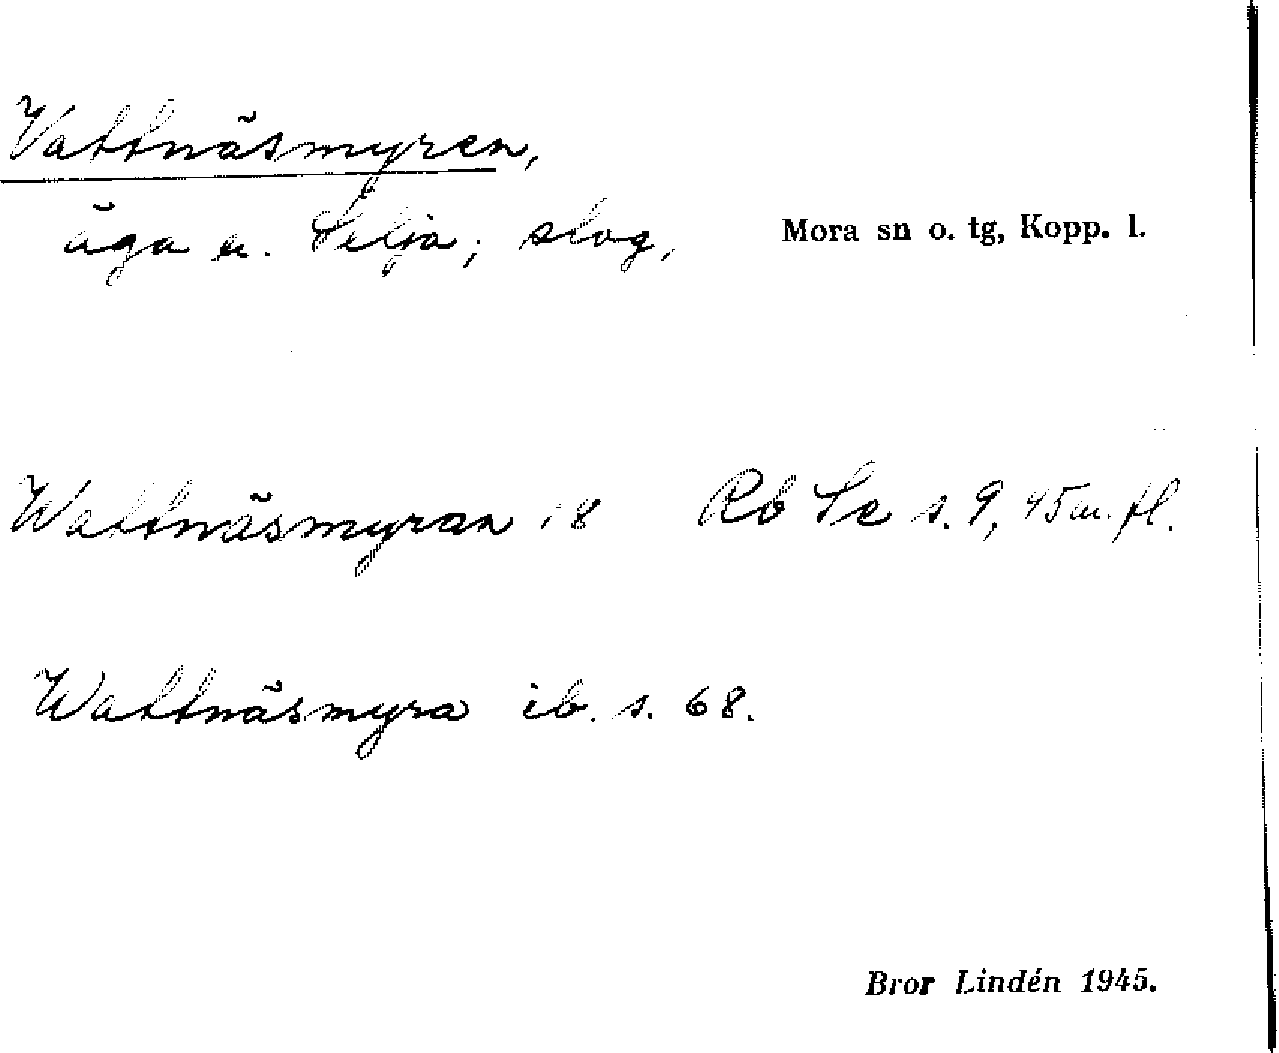 Vattnäsmyren,
äga u. Selja; slog, Mora sn o. tg, Kopp. l.
Wattnäsmyran 18 Rb Se s. 9, 45 m. fl.
Wattnäsmyra ib. s. 68.
Bror Lindén 1945.